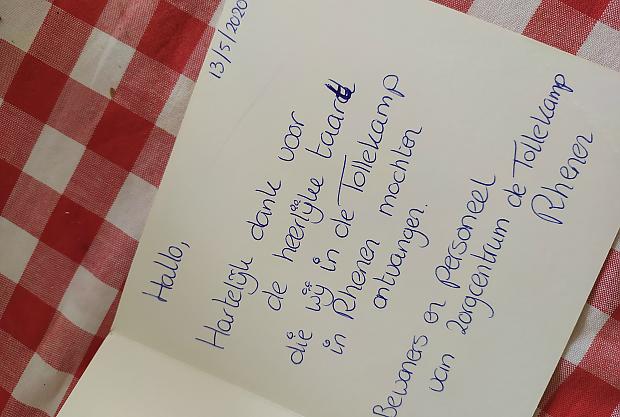 13/5/2020
Hallo,
Hartelijk dank voor
de heerlijke taart
die wij in de Tollekamp
in Rhenen mochten
ontvangen.
Bewoners en personeel
van zorgcentrum de Tollekamp
Rhenen